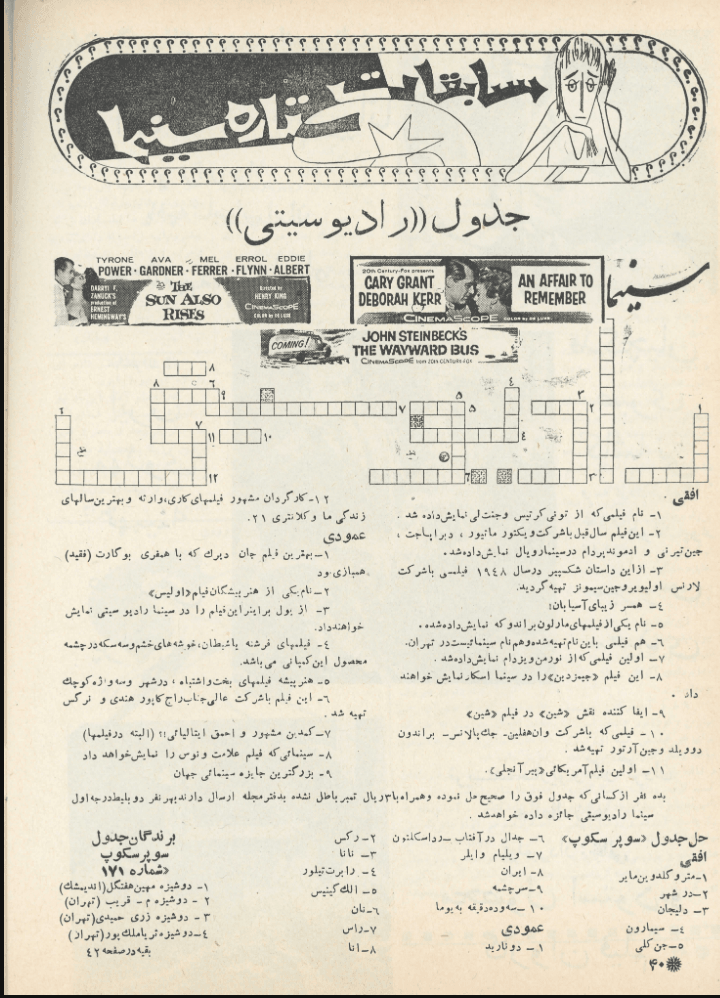 مسابقات ستاره سینما
جدول ((رادیو سیتی))
TYRONE AVA MEL ERROL EDDIE
POWER · GARDNER · FERRER · FLYNN · ALBERT
DARRYL F. ZANUCK'S
production of
ERNEST
HEMINGWAY'S
The
SUN ALSO
RISES
Directed by
HENRY KING
CINEMASCOPE
COLOR by DE LUXE
20th Century-Fox presents
CARY GRANT
DEBORAH KERR
AN AFFAIR TO
REMEMBER
CINEMASCOPE COLOR by DE LUXE
سینما
COMING!
JOHN STEINBECK'S
THE WAYWARD BUS
CINEMASCOPE from 20th CENTURY-FOX
افقی
۱- نام فیلمی که از تونی کرتیس و جنت لی نمایش داده شد .
۲- این فیلم سال قبل باشرکت ویکتور ماتیور ، دبراپاجت ،
جین تیرنی و ادموند پردام درسینما رویال نمایش داده شد .
۳- ازاین داستان شکسپیر درسال ۱۹۴۸ فیلمی باشرکت
لارنس اولیویر وجین سیمونز تهیه گردید.
۴- همسر زیبای آسیابان!
۵- نام یکی ازفیلمهای مارلون براندو که نمایش داده شده .
۶- هم فیلمی باین نام تهیه شده و هم نام سینمائیست در تهران.
۷- اولین فیلمی که از نورمن ویزدام نمایش داده شد .
۸- این فیلم «جیمزدین» را در سینما اسکار نمایش خواهند
داد .
۹- ایفا کننده نقش «شین» در فیلم «شین»
۱۰- فیلمی که باشرکت وان هفلین- جك پالانس- براندون
دوویلد وجین آرتور تهیه شد .
۱۱- اولین فیلم آمریکائی «پیر آنجلی».
۱۲- کارگردان مشهور فیلمهای کاری، وارنه و بهترین سالهای
زندگی ما و کلانتری ۲۱.
عمودی
۱- بهترین فیلم جان دیرك که با همفری بوگارت (فقید)
همبازی بود
۲- نام یکی از هنرپیشگان فیلم «اولیس»
۳- از پول برانر این فیلم را در سینما رادیو سیتی نمایش
خواهند داد.
۴- فیلمهای فرشته یا شیطان، خوشه های خشم و سه سکه در چشمه
محصول این کمپانی می باشد.
۵- هنرپیشه فیلمهای بخت و اشتباه ، در شهر و سه واژه کوچك
۶- این فیلم باشرکت عالی جناب راج کاپور هندی و نرگس
تهیه شد .
۷- کمدین مشهور و احمق ایتالیائی!؟ (البته درفیلمها)
۸- سینمائی که فیلم علامت ونوس را نمایش خواهد داد
۹- بزرگترین جایزه سینمائی جهان
بده نفر از کسانی که جدول فوق را صحیح حل نموده و همراه با ۳ ریال تمبر باطل نشده بدفتر مجله ارسال دارند بهر نفر دو بلیط درجه اول
سینما رادیو سیتی جائزه داده خواهد شد .
حل جدول «سوپر سکوپ»
افقی
۱- مترو گلدوین مایر
۲- در شهر
۳- دلیجان
۴- سیمارون
۵- جن کلی
۶- جدال در آفتاب - رد اسکلتون
۷- ویلیام وایلر
۸- ایران
۹- سرچشمه
۱۰- سه و ده دقیقه به یوما
عمودی
۱- دونارید
۲- رکس
۳- نانا
۴- رابرت تیلور
۵- الك گینیس
۶- نان
۷- راس
۸- انا
برندگان جدول
سوپر سکوپ
«شماره ۱۷۱
۱- دوشیزه مهین هفتگل (اندیمشك)
۲- دوشیزه م - قریب (تهران)
۳- دوشیزه زری حمیدی (تهران)
۴- دوشیزه ثریا ملك پور (تهران)
بقیه در صفحه ۴۲
۴۰